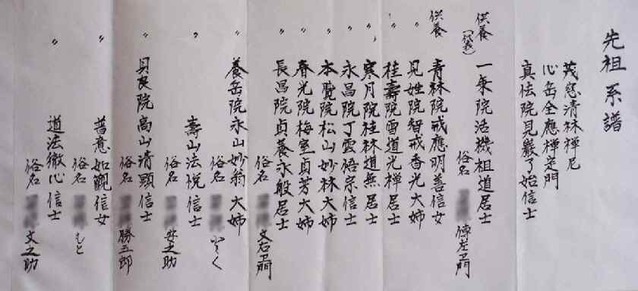 先祖系譜
茂慈清林禅尼
心岳全應禅定門
真法院見巖了始信士
供養 一乗院活機祖道居士
(代表)
俗名 傳左卫門
供養 青林院戒應明善信女
〃 見性院智戒香光大姉
〃 桂壽院雪道光禅居士
寒月院桂林道無居士
永昌院丁雲悟宗信士
本覧院松山妙林大姉
春光院梅室貞芳大姉
長昌院貞養永般居士
俗名 文右卫門
〃 養岳院永山妙翁大姉
俗名 く
〃 壽山法悦信士
俗名 弁之助
〃 貝良院高山清顕信士
俗名 勝五郎
〃 普意如觀信女
俗名 もと
〃 道法徹心信士
俗名 文之助